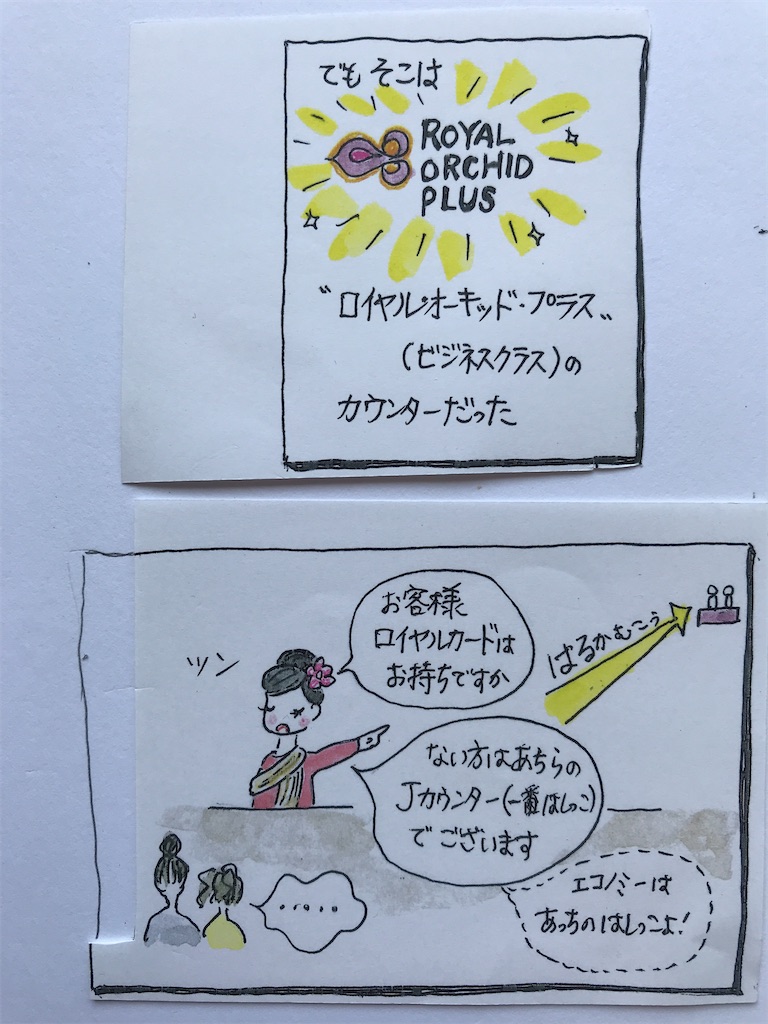 でも そこは
ROYAL
ORCHID
PLUS
〝ロイヤル・オーキッド・プラス〟
(ビジネスクラス)の
カウンターだった
お客様
ロイヤルカードは
お持ちですか
ツン
はるかむこう
ない方はあちらの
Jカウンター(一番はしっこ)
でございます
.....
エコノミーは
あっちのはしっこよ!